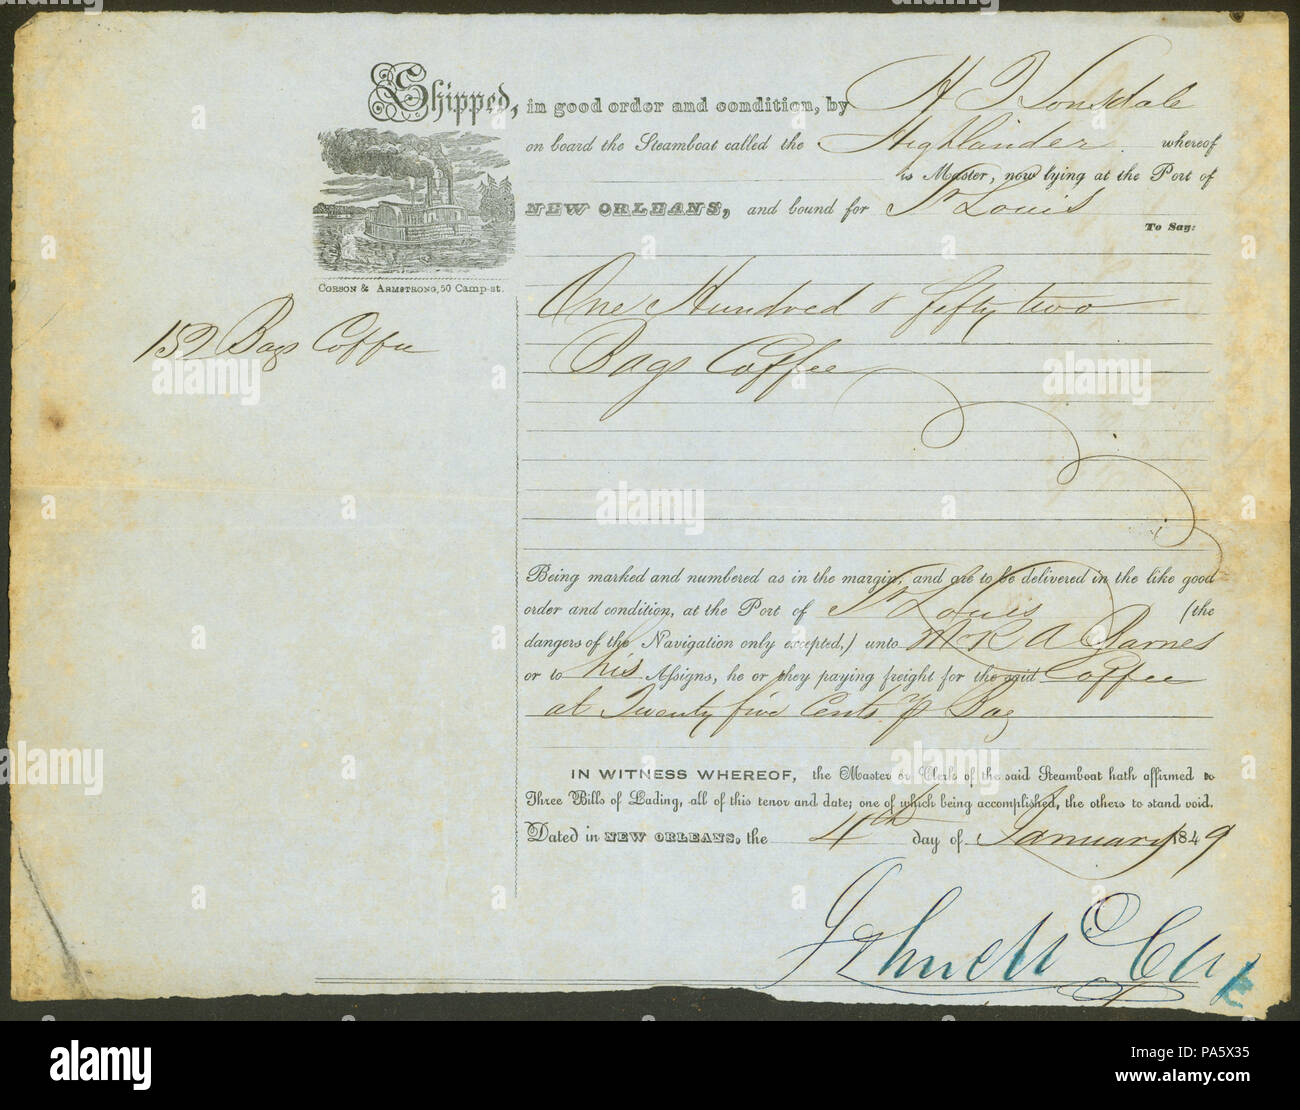 Shipped, in good order and condition, by H T Lonsdale
on board the Steamboat called the Highlander whereof
is Master, now lying at the Port of
NEW ORLEANS, and bound for St Louis
To Say:
CORSON & ARMSTRONG, 50 Camp-st.
152 Bags Coffee
One Hundred & fifty two
Bags Coffee
Being marked and numbered as in the margin, and are to be delivered in the like good
order and condition, at the Port of St Louis (the
dangers of the Navigation only excepted,) unto R A Barnes
or to his Assigns, he or they paying freight for the said Coffee
at Twenty five Cents p Bag
IN WITNESS WHEREOF, the Master or Clerk of the said Steamboat hath affirmed to
Three Bills of Lading, all of this tenor and date; one of which being accomplished, the others to stand void.
Dated in NEW ORLEANS, the 4th day of January 1849
alamy
alamy
alamy
Image ID: PA5X35
www.alamy.com